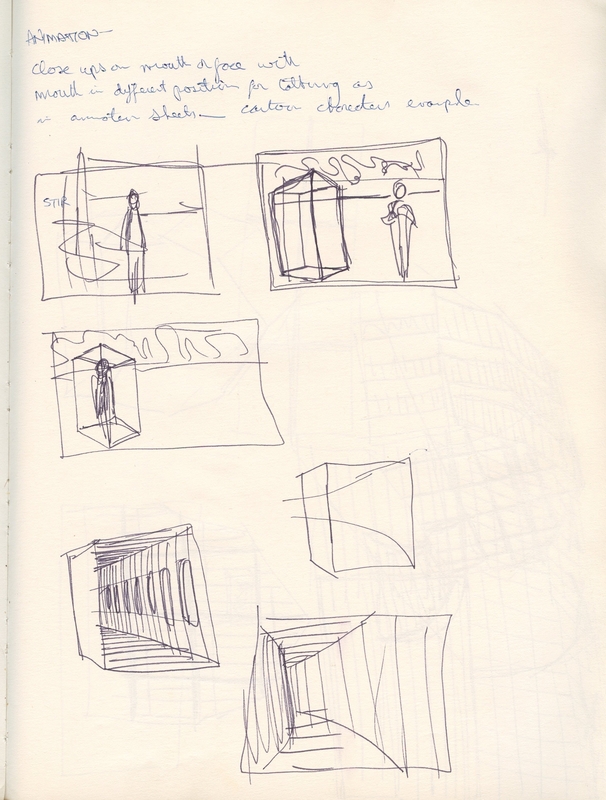 ANIMATION—
Close ups on mouth of face with
mouth in different position for talking as
in animation sheets— cartoon characters example
STIR